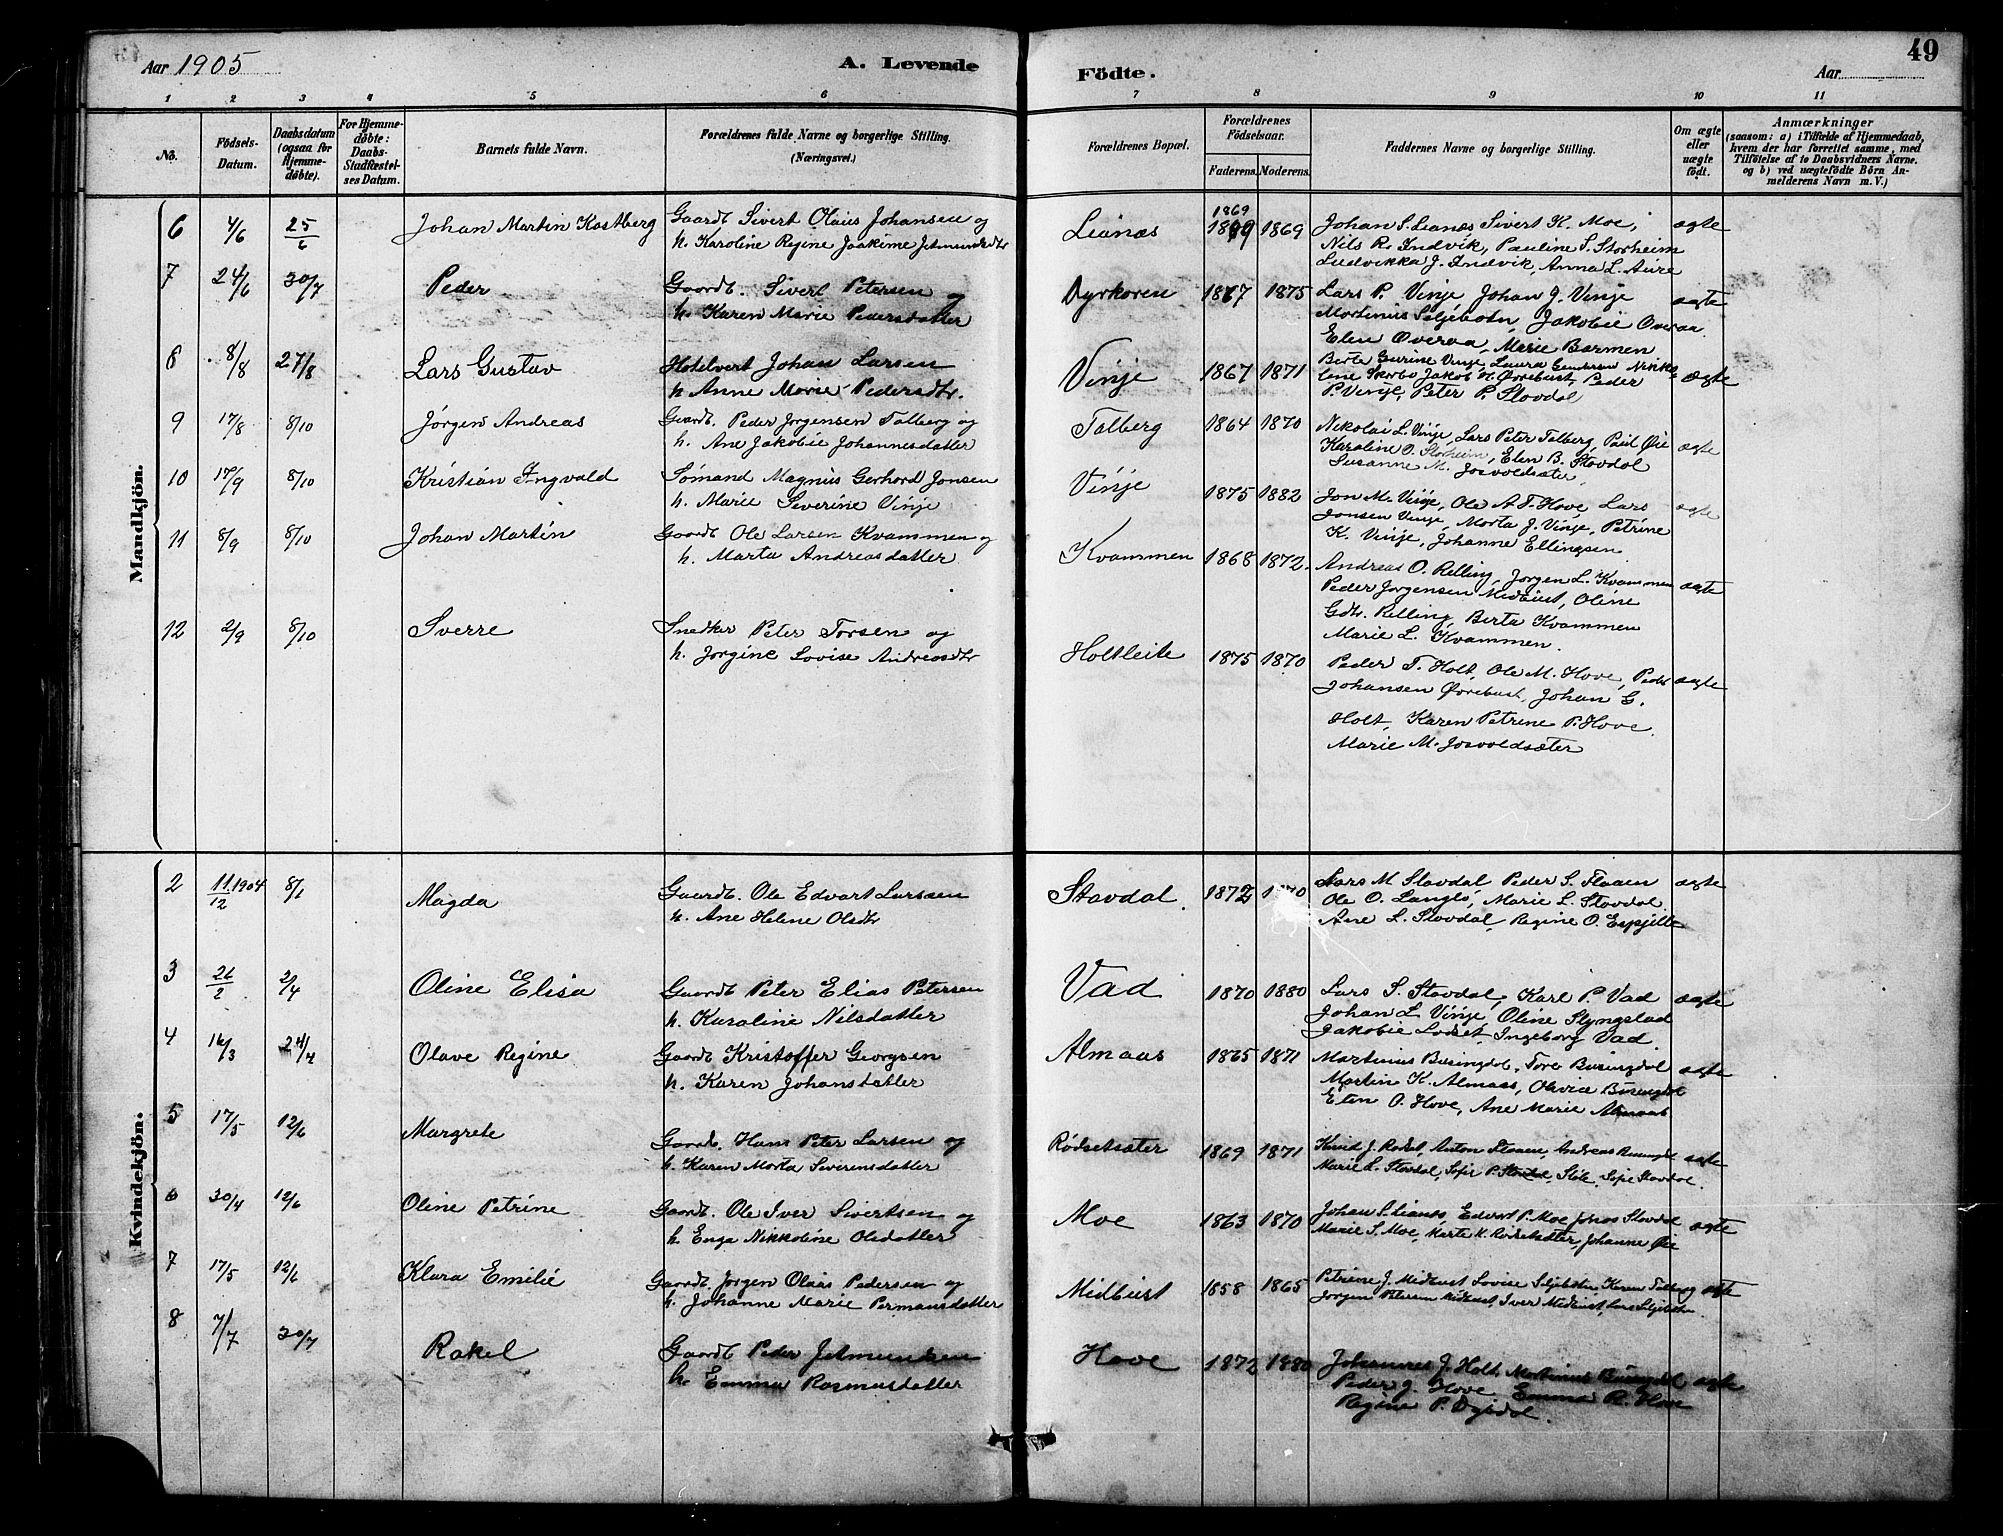 Aar 1905
A. Levende
Födte.
49
Aar
1 2 3 4 5 6 7 8 9 10 11
No.
Födsels-Datum.
Daabsdatum (ogsaa for Hjemmedöbte).
For Hjemmedöbte: Daabs-Stadfæstelses Datum.
Barnets fulde Navn.
Forældrenes fulde Navne og borgerlige Stilling. (Næringsvei.)
Forældrenes Bopæl.
Forældrenes Födselsaar.
Faderens. Moderens.
Faddernes Navne og borgerlige Stilling.
Om ægte eller uægte födt.
Anmærkninger
(saasom: a) i Tilfælde af Hjemmedaab, hvem der har forrettet samme, med Tilföielse af to Daabsvidners Navne. og b) ved uægtefödte Börn Anmelderens Navn m. V.)
Mandkjön.
6 4/6 25/6 Johan Martin Kastberg Gaardb. Sivert Olaus Johansen og Lianæs 1869 1869 Johan S. Lianæs, Sivert K. Moe, ægte
h. Karoline Regine Joakime Jetmundsdtr Nils R. Indvik, Pauline S. Storheim
Ludvikka J. Indvik, Anna L. Aure
7 24/6 30/7 Peder Gaardb. Sivert Petersen og Dyrkoren 1867 1875 Lars P. Vinje Johan J. Vinje ægte
h. Karen Marie Pedersdatter Martinus Seljebotn, Jakobie Overaa
Elen Overaa, Marie Barmen
8 8/8 27/8 Lars Gustav Hotelvert Johan Larsen Vinje 1867 1871 Berte Gurine Vinje, Laura Nikko- ægte
h. Anne Marie Pedersdtr. line Skorbø Jakob H. Ørebust, Peder
P. Vinje, Peter P. Stavdal
9 17/8 8/10 Jørgen Andreas Gaardb. Peder Jørgensen Talberg og Talberg 1864 1870 Nikolai L. Vinje, Lars Peter Talberg, Paul Øie ægte
h. Ane Jakobie Johannesdatter Karoline O. Storheim, Elen B. Stavdal
Susanne M. Josvoldsæter
10 17/9 8/10 Kristian Ingvald Sømand Magnus Gerhard Jonsen Vinje 1875 1882 Jon M. Vinje, Ole A T. Hove Lars ægte
h. Marie Severine Vinje Jonsen Vinje, Marta J. Vinje, Petrine
K. Vinje, Johanne Ellingsen
11 8/9 8/10 Johan Martin Gaardb Ole Larsen Kvammen og Kvammen 1868 1872. Andreas O. Relling, Jørgen L. Kvammen ægte
h. Marta Andreasdatter Peder Jørgensen Midbust, Oline
Gdtr. Relling, Berta Kvammen
Marie L. Kvammen.
12 2/9 8/10 Sverre Snedker Peter Torsen og Holtleite 1875 1870 Peder T. Holt, Ole M. Hove, Peder ægte
h. Jørgine Lovise Andreasdtr Johansen Ørebust, Johan G.
Holt, Karen Petrine P. Hove
Marie M. Josvoldsæter
Kvindekjön.
2 11/12 1904 8/1 Magda Gaardb. Ole Edvart Larsen Stavdal 1872 1870 Lars M Stavdal Peder S. Flaaen ægte
h. Ane Helene Olsdtr Ole O. Langlo, Marie L. Stavdal
Ane L. Stavdal, Regine O.
3 26/2 2/4 Oline Elisa Gaardb Peter Elias Petersen Vad 1870 1880 Lars S. Stavdal, Karl P. Vad ægte
h. Karaline Nilsdatter Johan L Vinje, Oline Slyngstad
Jakobie Ingeborg Vad.
4 16/3 24/4 Olave Regine Gaardb Kristoffer Georgsen Almaas 1865 1871 Martinus Busingdal, Tore Busingdal ægte
h. Karen Johansdatter Martin K. Almaas, Olivia Busingdal
Elen O. Hove, Ane Marie Almaas
5 17/5 12/6 Margrete Gaardb. Hans Peter Larsen og Rødsetsæter 1869 1871 Knud J. Rødset, Anton Flaaen, Andreas ægte
h. Karen Marta Severensdatter Marie L. Stavdal, Sofie P. Sofie Stavdal.
6 30/4 12/6 Oline Petrine Gaardb. Ole Iver Sivertsen og Moe 1863 1870 Johan S. Lianæs, Edvart P. Moe Jonas Stavdal ægte
h. Enga Nikkoline Olsdatter Marie S. Moe, Marte K. Rødsetsæter, Johanne Øie
7 17/5 12/6 Klara Emilie Gaardb. Jørgen Olaus Pedersen og Midbust 1858 1865 Petrine J. Midbust Lovise Seljebotn, Karen Talberg ægte
h. Johanne Marie Permansdatter Jørgen Petersen Midbust, Iver Midbust, Lars Seljebotn
8 7/7 30/7 Rakel Gaardb Peder Jetmundsen Hove 1872 1880 Johannes J. Holt, Martinus Busingdal ægte
h. Emma Rasmusdatter Peder J. Hove Emma R. Hove
Regine P.